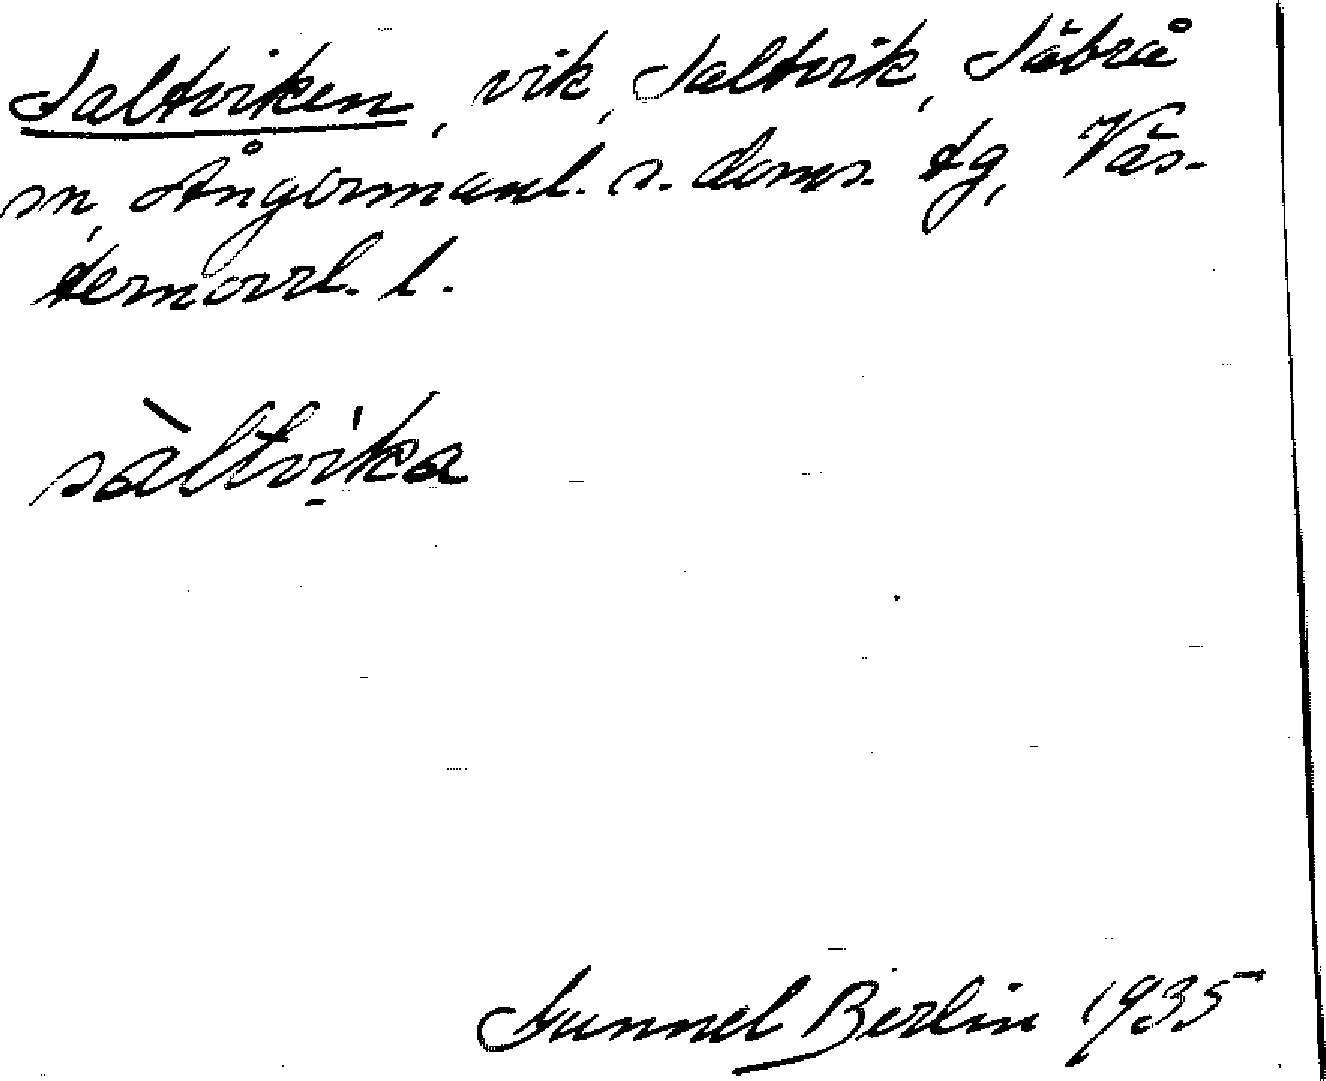 Saltviken, vik, Saltvik, Säbrå
sn, Ångermanl. s. doms. tg, Väs-
ternorrl. l.
sàltvịka
Gunnel Berlin 1935